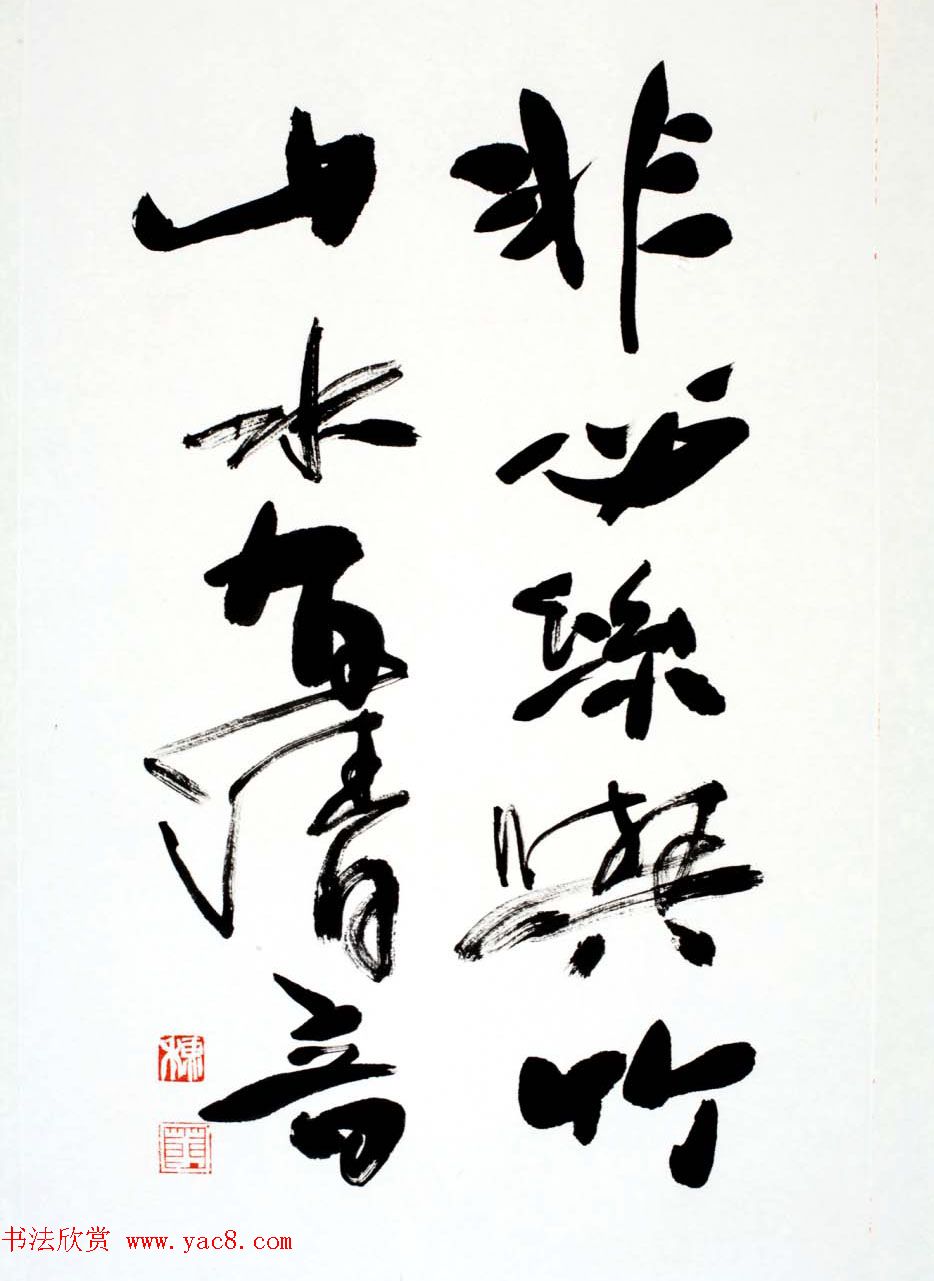 非必絲與竹
山水有清音
书法欣赏 www.yac8.com